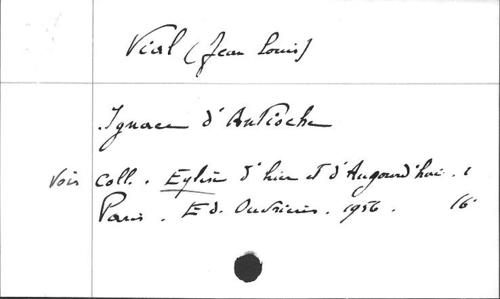 Vial (Jean Louis)
Ignace d'Antioche
Voir Coll. Eglise d'hier et d'Aujourd'hui. 1
Paris. Ed. Ouvrières. 1956. 16